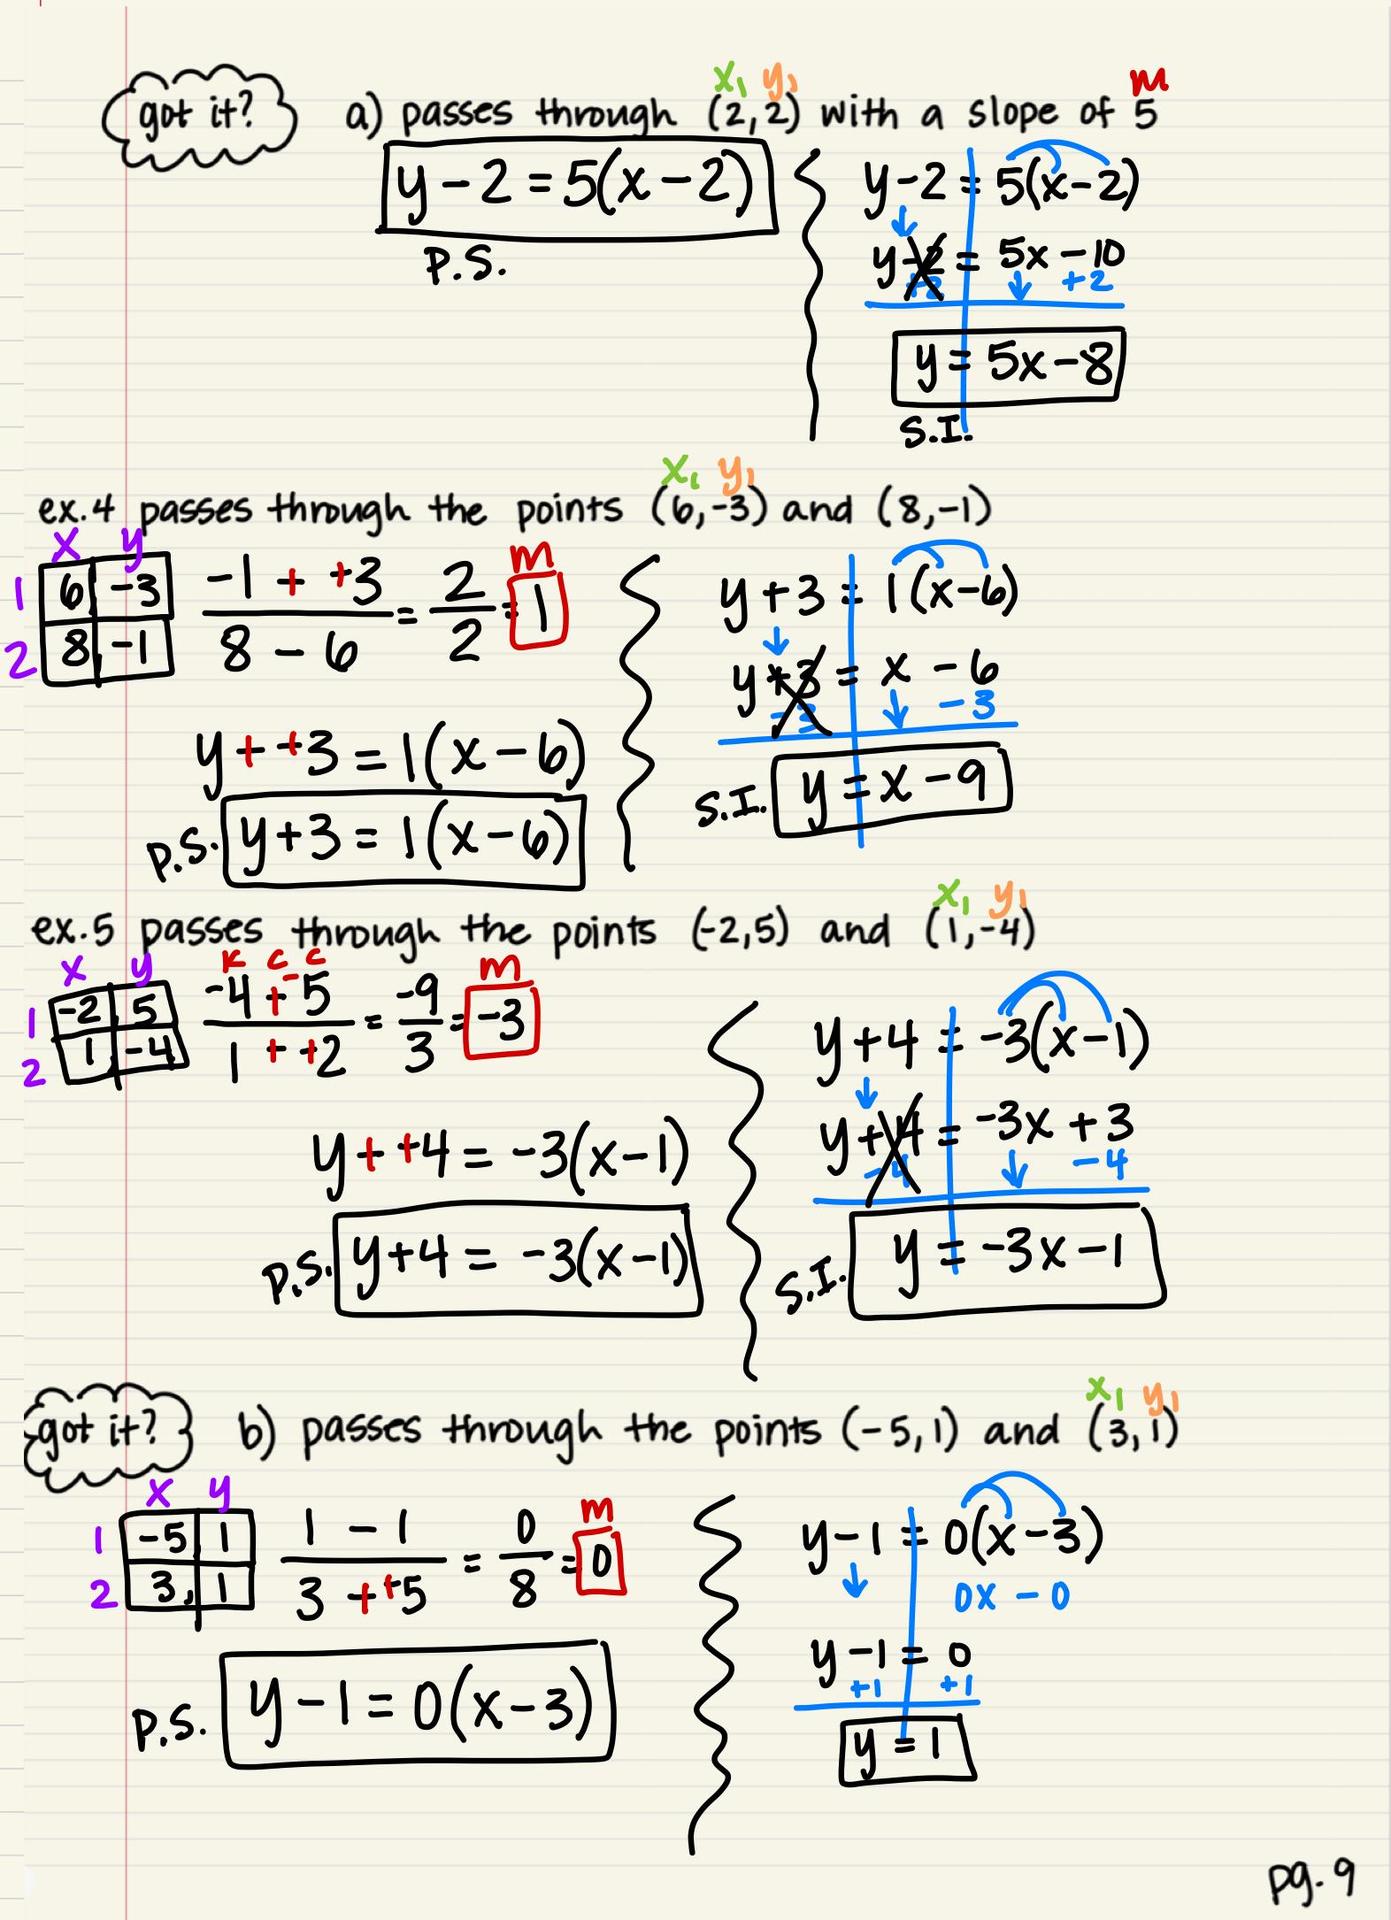 got it? a) passes through (2,2) with a slope of 5
x₁ y₁ m
y-2 = 5(x-2)
P.S.
y-2 = 5(x-2)
y-2 = 5x-10
+2 +2
y = 5x-8
S.I.
ex.4 passes through the points (6,-3) and (8,-1)
x₁ y₁
x y
1 6 -3
2 8 -1
-1 + +3 / 8 - 6 = 2/2 = 1
m
y + +3 = 1(x-6)
P.S. y+3 = 1(x-6)
y+3 = 1(x-6)
y+3 = x - 6
-3 -3
S.I. y = x-9
ex.5 passes through the points (-2,5) and (1,-4)
x₁ y₁
x y
1 -2 5
2 1 -4
K C C
-4 + -5 / 1 + +2 = -9/3 = -3
m
y + +4 = -3(x-1)
P.S. y+4 = -3(x-1)
y+4 = -3(x-1)
y+4 = -3x+3
-4 -4
S.I. y = -3x-1
got it? b) passes through the points (-5,1) and (3,1)
x₁ y₁
x y
1 -5 1
2 3 1
1 - 1 / 3 + +5 = 0/8 = 0
m
P.S. y-1 = 0(x-3)
y-1 = 0(x-3)
0x - 0
y-1 = 0
+1 +1
y = 1
pg. 9